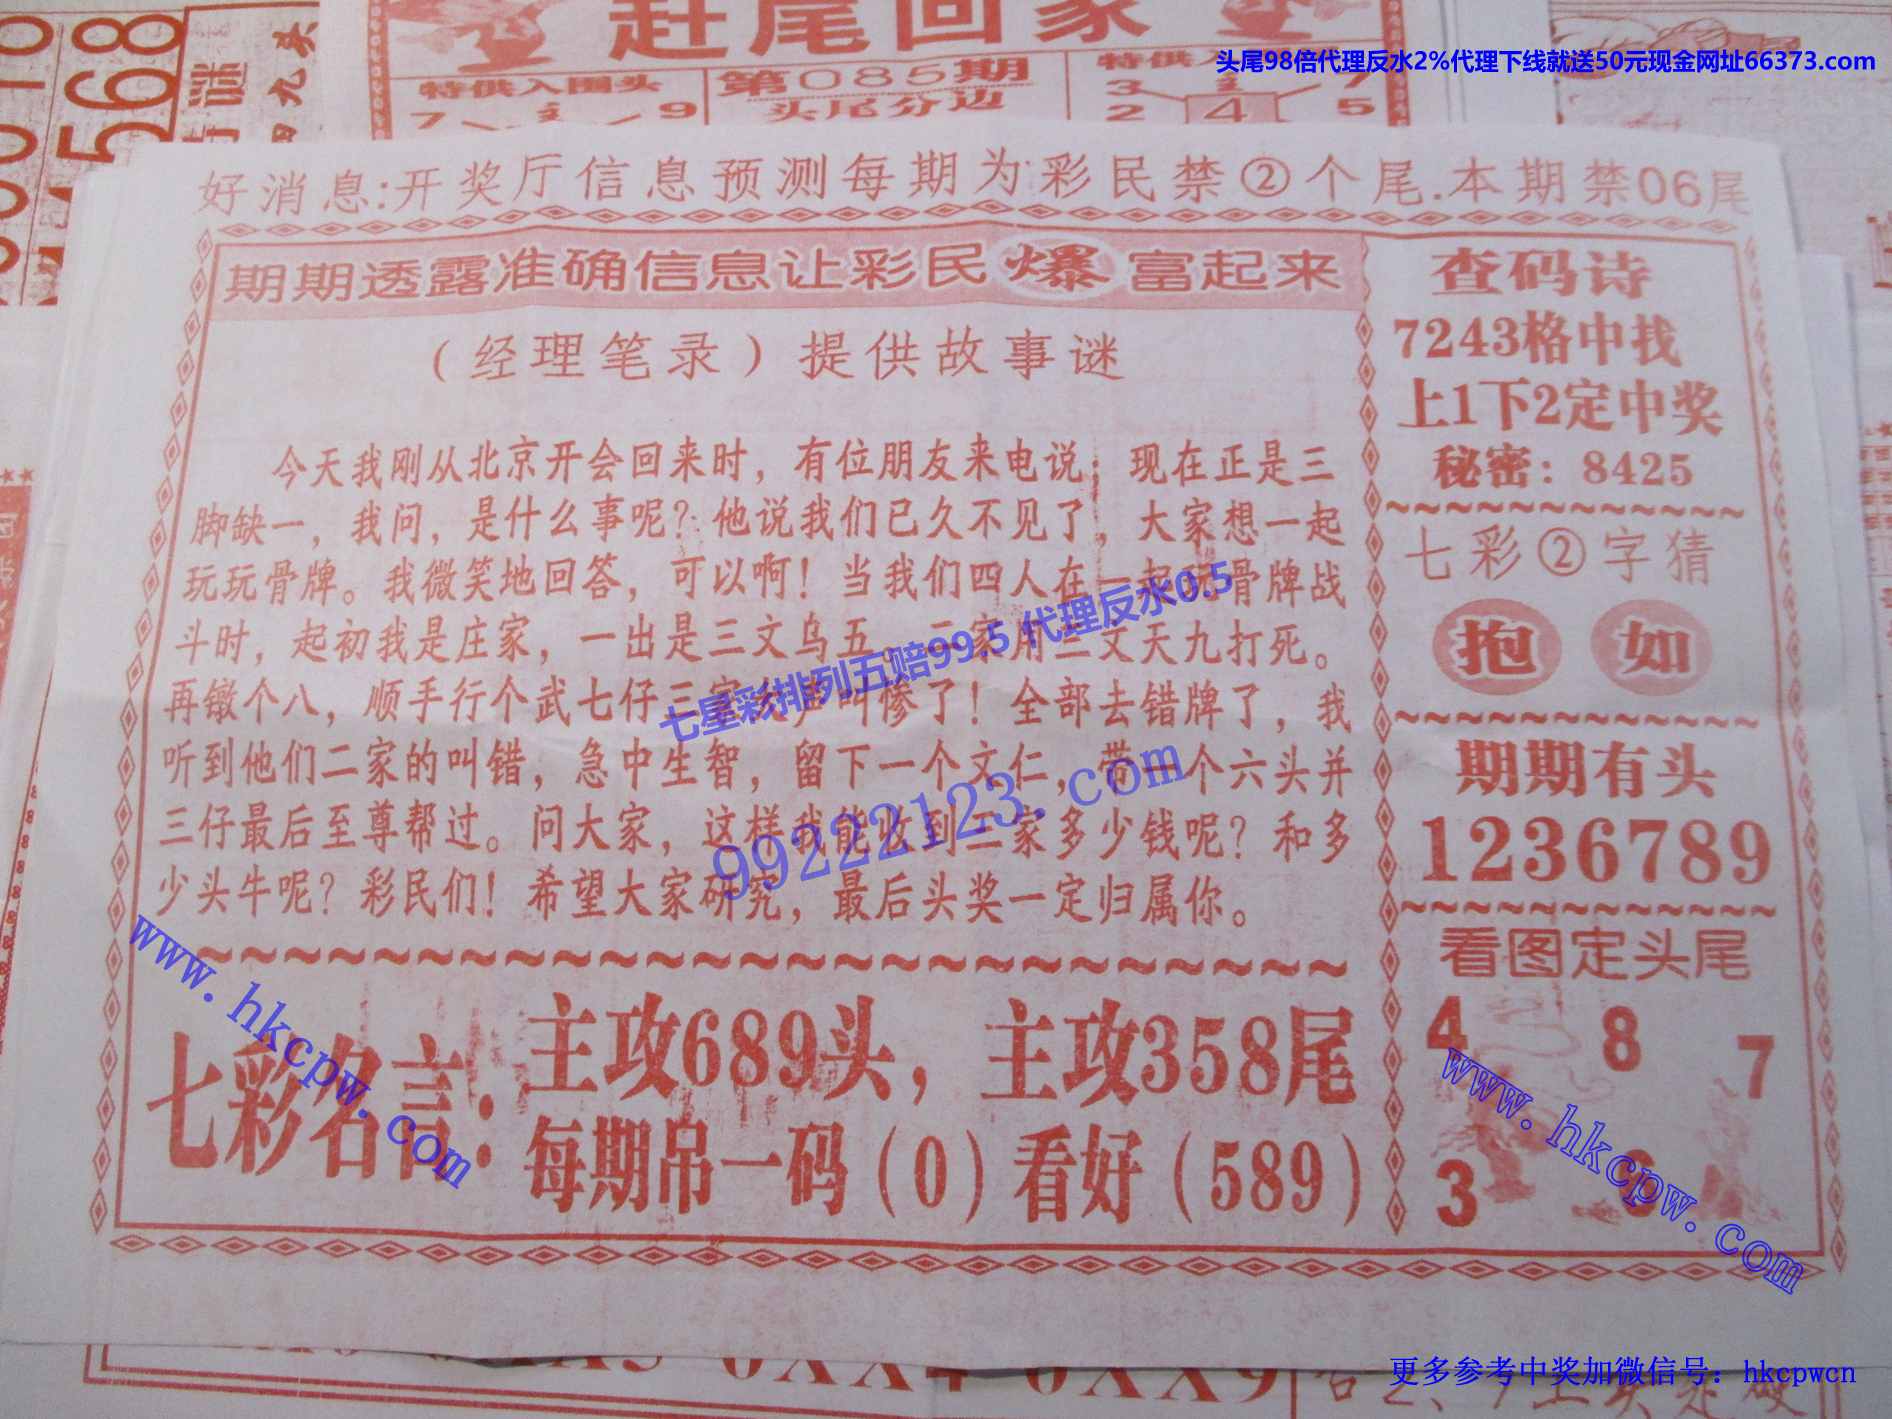 赶尾回家
头尾98倍代理反水2%代理下线就送50元现金网址66373.com
特供入围头
第085期
头尾分边
7
9
3
2
4
7
5
568
好消息:开奖厅信息预测每期为彩民禁②个尾.本期禁06尾
期期透露准确信息让彩民爆富起来
(经理笔录)提供故事谜
今天我刚从北京开会回来时，有位朋友来电说，现在正是三
脚缺一，我问，是什么事呢？他说我们已久不见了，大家想一起
玩玩骨牌。我微笑地回答，可以啊！当我们四人在一起玩骨牌战
斗时，起初我是庄家，一出是三文乌五。二家用三文天九打死。
再镦个八，顺手行个武七仔三家大声叫惨了！全部去错牌了，我
听到他们二家的叫错，急中生智，留下一个文仁，带一个六头并
三仔最后至尊帮过。问大家，这样我能收到三家多少钱呢？和多
少头牛呢？彩民们！希望大家研究，最后头奖一定归属你。
七星彩排列五赔99.5 代理反水0.5
99222123.com
七彩名言:
主攻689头，主攻358尾
每期吊一码(0)看好(589)
查码诗
7243格中找
上1下2定中奖
秘密: 8425
七彩②字猜
抱 如
期期有头
1236789
看图定头尾
4 8 7
3 6
www.hkcpw.com
www.hkcpw.com
更多参考中奖加微信号：hkcpwcn